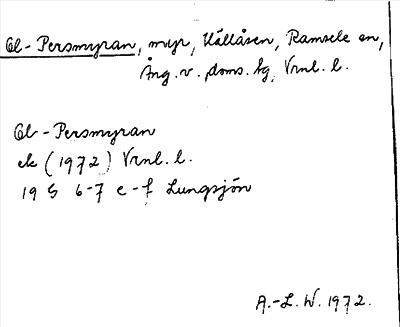 Ol-Persmyran, myr, Källåsen, Ramsele sn,
Ång. v. doms. hg, Vrnl. l.
Ol-Persmyran
ek (1972) Vrnl. l.
19 G 6-7 e-f Lungsjön
A.-L. W. 1972.